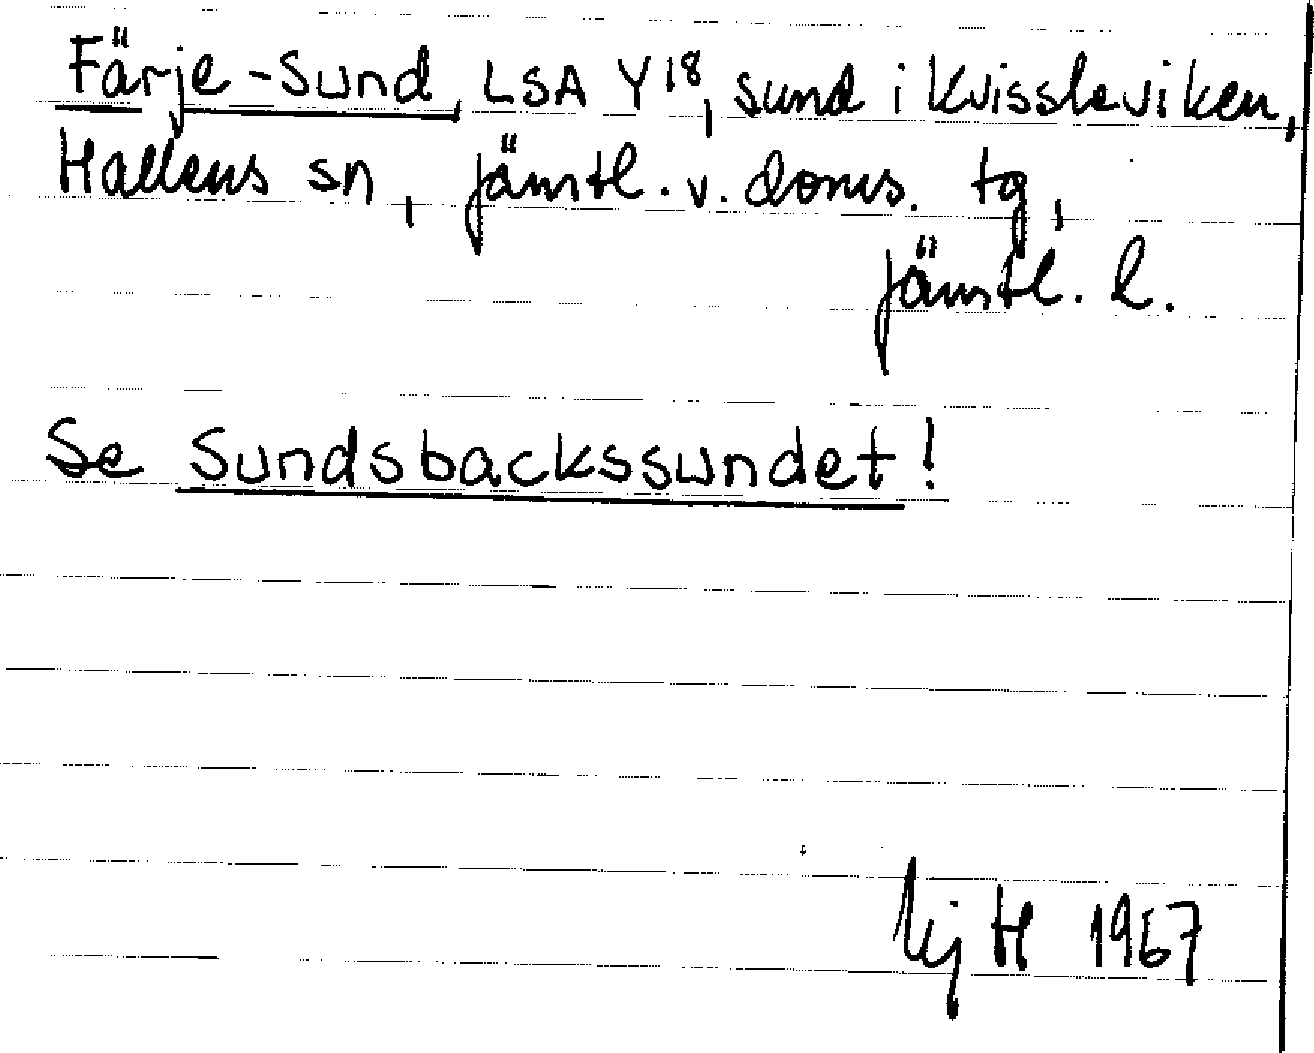 Färje-Sund, LSA Y18, sund i Kvissleviken,
Hallens sn, Jämtl. v. doms. tg,
Jämtl. l.
Se Sundsbackssundet!
H 1967